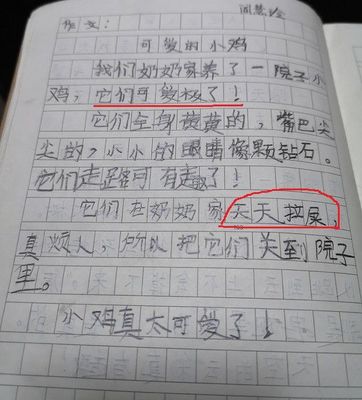 作文:
可爱的小鸡
我们奶奶家养了一院子小
鸡,它们可爱极了!
它们全身黄黄的,嘴巴尖
尖的,小小的眼睛像颗钻石。
它们走路可有趣了!
它们在奶奶家天天拉屎,
真烦人,所以把它们关到院子
里。
小鸡真太可爱了!